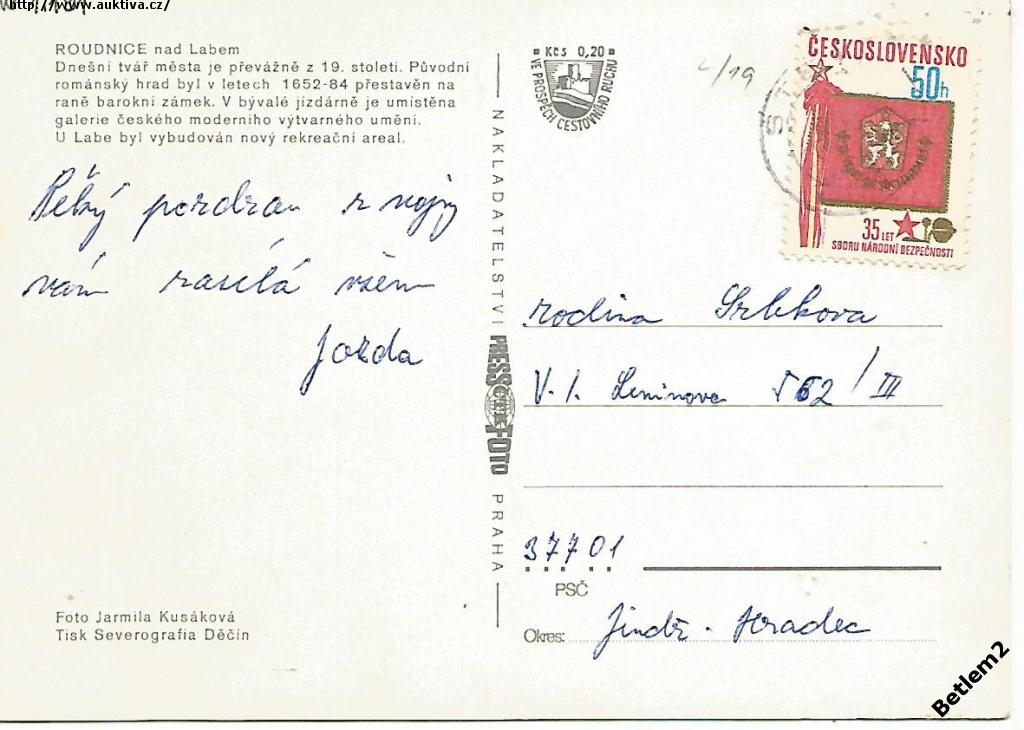 http://www.auktiva.cz/
ROUDNICE nad Labem
Dnešní tvář města je převážně z 19. století. Původní
románský hrad byl v letech 1652-84 přestavěn na
raně barokní zámek. V bývalé jízdárně je umístěna
galerie českého moderního výtvarného umění.
U Labe byl vybudován nový rekreační areal.
Pěkný pozdrav z vojny
vám zasílá všem
Jozda
Foto Jarmila Kusáková
Tisk Severografia Děčín
NAKLADATELSTVÍ PRESSFOTO PRAHA
ČTK
Kčs 0,20
VE PROSPĚCH CESTOVNÍHO RUCHU
4/19
ČESKOSLOVENSKO
50h
35 LET
SBORU NÁRODNÍ BEZPEČNOSTI
rodina Srbkova
V. I. Leninova 562/III
37701
PSČ
Okres: Jindř. Hradec
Betlem2